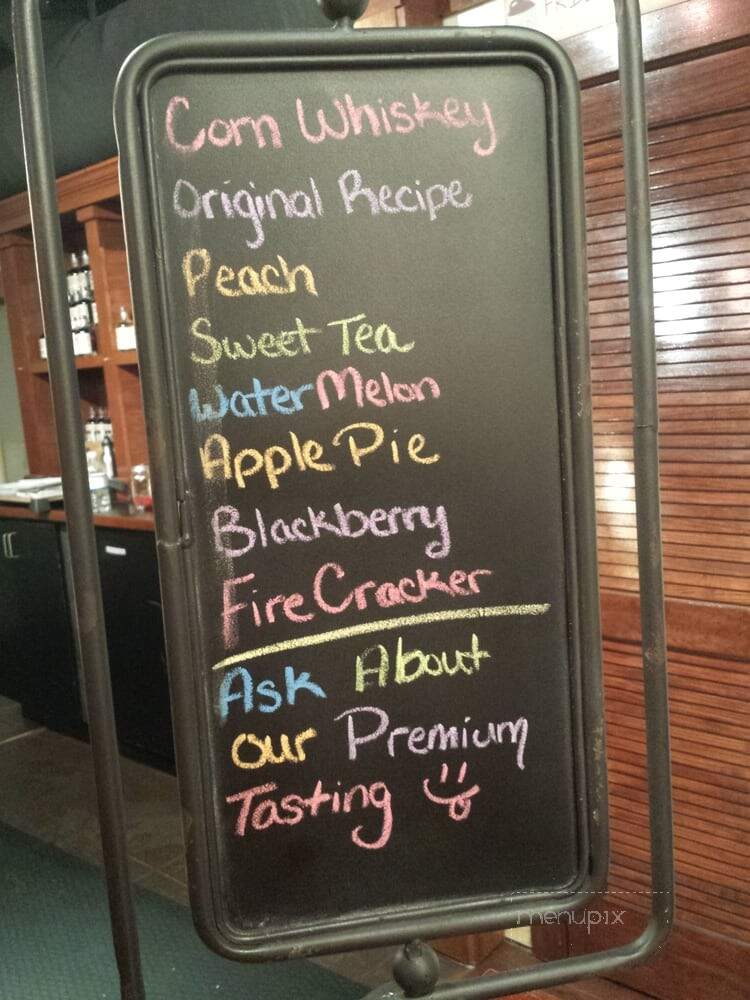 Corn Whiskey
Original Recipe
Peach
Sweet Tea
WaterMelon
Apple Pie
Blackberry
FireCracker
Ask About
our Premium
Tasting
menupix